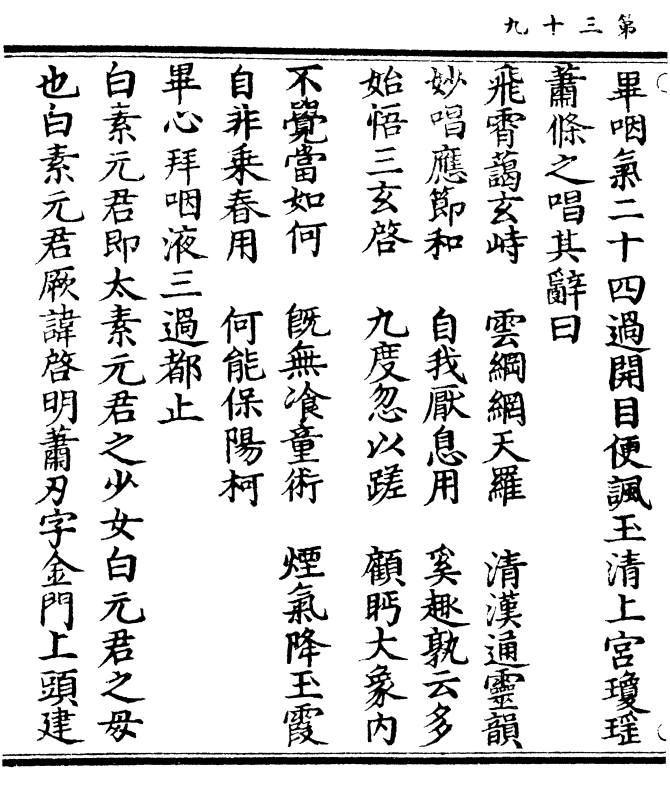 第三十九
畢咽氣二十四過開目便諷玉清上宮瓊瑶
蕭條之唱其辭曰
飛霄藹玄峙 雲綱網天羅 清漢通靈韻
妙唱應節和 自我厭息用 奚趣孰云多
始悟三玄啓 九度忽以蹉 顧眄大象内
不覺當如何 旣無飡童術 煙氣降玉霞
自非乗春用 何能保陽柯
畢心拜咽液三過都止
白素元君即太素元君之少女白元君之母
也白素元君厥諱啓明蕭刃字金門上頭建